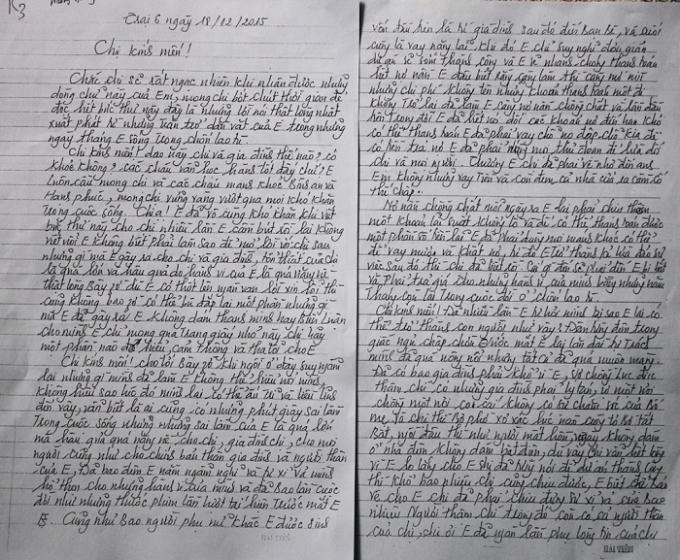 Trại 6 ngày 18/12/2015
Chị kính mến!
Chắc chị sẽ rất ngạc nhiên khi nhận được những
dòng chữ này của Em, mong chị bớt chút thời gian để
đọc hết bức thư này đây là những lời nói thật lòng nhất
xuất phát từ những trăn trở dằn vặt của E trong những
ngày tháng E sống trong chốn lao tù.
Chị kính mến! dạo này chị và gia đình thế nào? có
khoẻ không? các cháu vẫn học hành tốt đấy chứ? E
luôn cầu mong chị và các cháu mạnh khoẻ Bình an và
Hạnh phúc, mong chị vững vàng vượt qua mọi khó khăn
trong cuộc sống. Chị ạ! E đã vô cùng khó khăn khi viết
bức thư này cho chị nhiều lần E cầm bút rồi lại không
viết nổi E không biết phải làm sao để nói lời với chị sau
những gì mà E gây ra cho chị và gia đình, tổn thất của chị
là quá lớn và hậu quả do hành vi của E là quá nặng nề
thật lòng Bây giờ dù E có thốt lên ngàn vạn lời xin lỗi thì
cũng không bao giờ có thể bù đắp lại một phần những gì
mà E đã gây ra. E không dám thanh minh hay biện luận
cho mình E chỉ mong qua trang giấy nhỏ này chị hãy
một phần nào đó hiểu, cảm thông và tha tội cho E
Chị kính mến! Cho tới Bây giờ khi ngồi ở đây suy ngẫm
lại những gì mình đã làm E không thể hiểu nổi mình,
không hiểu sao lúc đó mình lại có thể
đến vậy, vẫn biết là ai cũng có những phút giây sai lầm
trong cuộc sống nhưng những sai lầm của E là quá lớn
mà hậu quả quá nặng nề cho chị, gia đình chị, cho mọi
người cũng như cho chính bản thân gia đình và người thân
của E, Đã bao đêm E nằm ngẫm nghĩ và
hổ thẹn cho những hành vi của mình và đã bao lần cuộc
đời như những thước phim lần lượt tái hiện trước mắt E
Cũng như bao người phụ nữ khác E được sinh
HẢI TIẾN
vốn đầu tiên là từ gia đình sau đó đến bạn bè, và cuối
cùng là vay nặng lãi khi đó E chỉ suy nghĩ đơn giản
dự án sẽ sớm thành công và E sẽ nhanh chóng thanh toán
hết nợ nần E đâu biết rằng càng làm thì càng nợ với
những chi phí khổng lồ nhưng khoản thanh toán một đi
không trở lại đã làm E càng nợ nần chồng chất và lún dần
hơn trong đó E đã hết nợ đối các khoản nợ đến hạn khó
có thể thanh toán E đã phải vay chỗ nọ đắp chỗ kia để
có tiền trả nợ E đã phải dùng mọi thủ đoạn để lừa dối
chị và mọi người. Thương E chị đã phải về nhờ đến anh
Em không những vay tiền và còn đem cả nhà cửa ra cầm cố
thế chấp.
Nợ nần chồng chất mỗi ngày ra E lại phải chịu thêm
một khoản lãi suất khổng lồ và để có thể thanh toán được
một phần số tiền lãi E đã phải dùng mọi mánh khoé có thể
để vay mượn và khất nợ, từ đó E trở thành kẻ lừa đảo sự
việc sau đó thì chị đã biết rồi. Cái gì đến sẽ phải đến E bị bắt
và phải trả giá cho những hành vi của mình bằng những năm
tháng còn lại trong cuộc đời ở chốn lao tù.
Chị kính mến! Đã nhiều lần E tự hỏi mình vì sao E lại có
thể trở thành con người như vậy! Đêm đêm trong
giấc ngủ chập chờn trước mắt E lại hiện lên tự trách
mình đã quá nông nổi nhưng tất cả đã quá muộn màng.
Đã có bao gia đình phải khổ vì E, vợ chồng lục đục
thậm chí có những gia đình phải ly tán, vợ một nơi
chồng một nơi con cái không có sự chăm sóc của Bố
Mẹ và chị thì Bỏ phố xá việc lúc nào cũng tất bật
ngồi đâu thì như người mất hồn, ngày không dám
ở nhà đêm không dám bật đèn, dù vậy chị vẫn hết lòng
vì E lo lắng cho E
thì khổ bao nhiêu chị cũng chịu được, E biết chỉ
vì cho E chị đã phải chịu đựng sự sỉ vả của bao
nhiêu người thậm chí trong đó còn có cả người thân
của chị, chị ơi E đã ngàn lần phụ lòng tin của chị
HẢI TIẾN